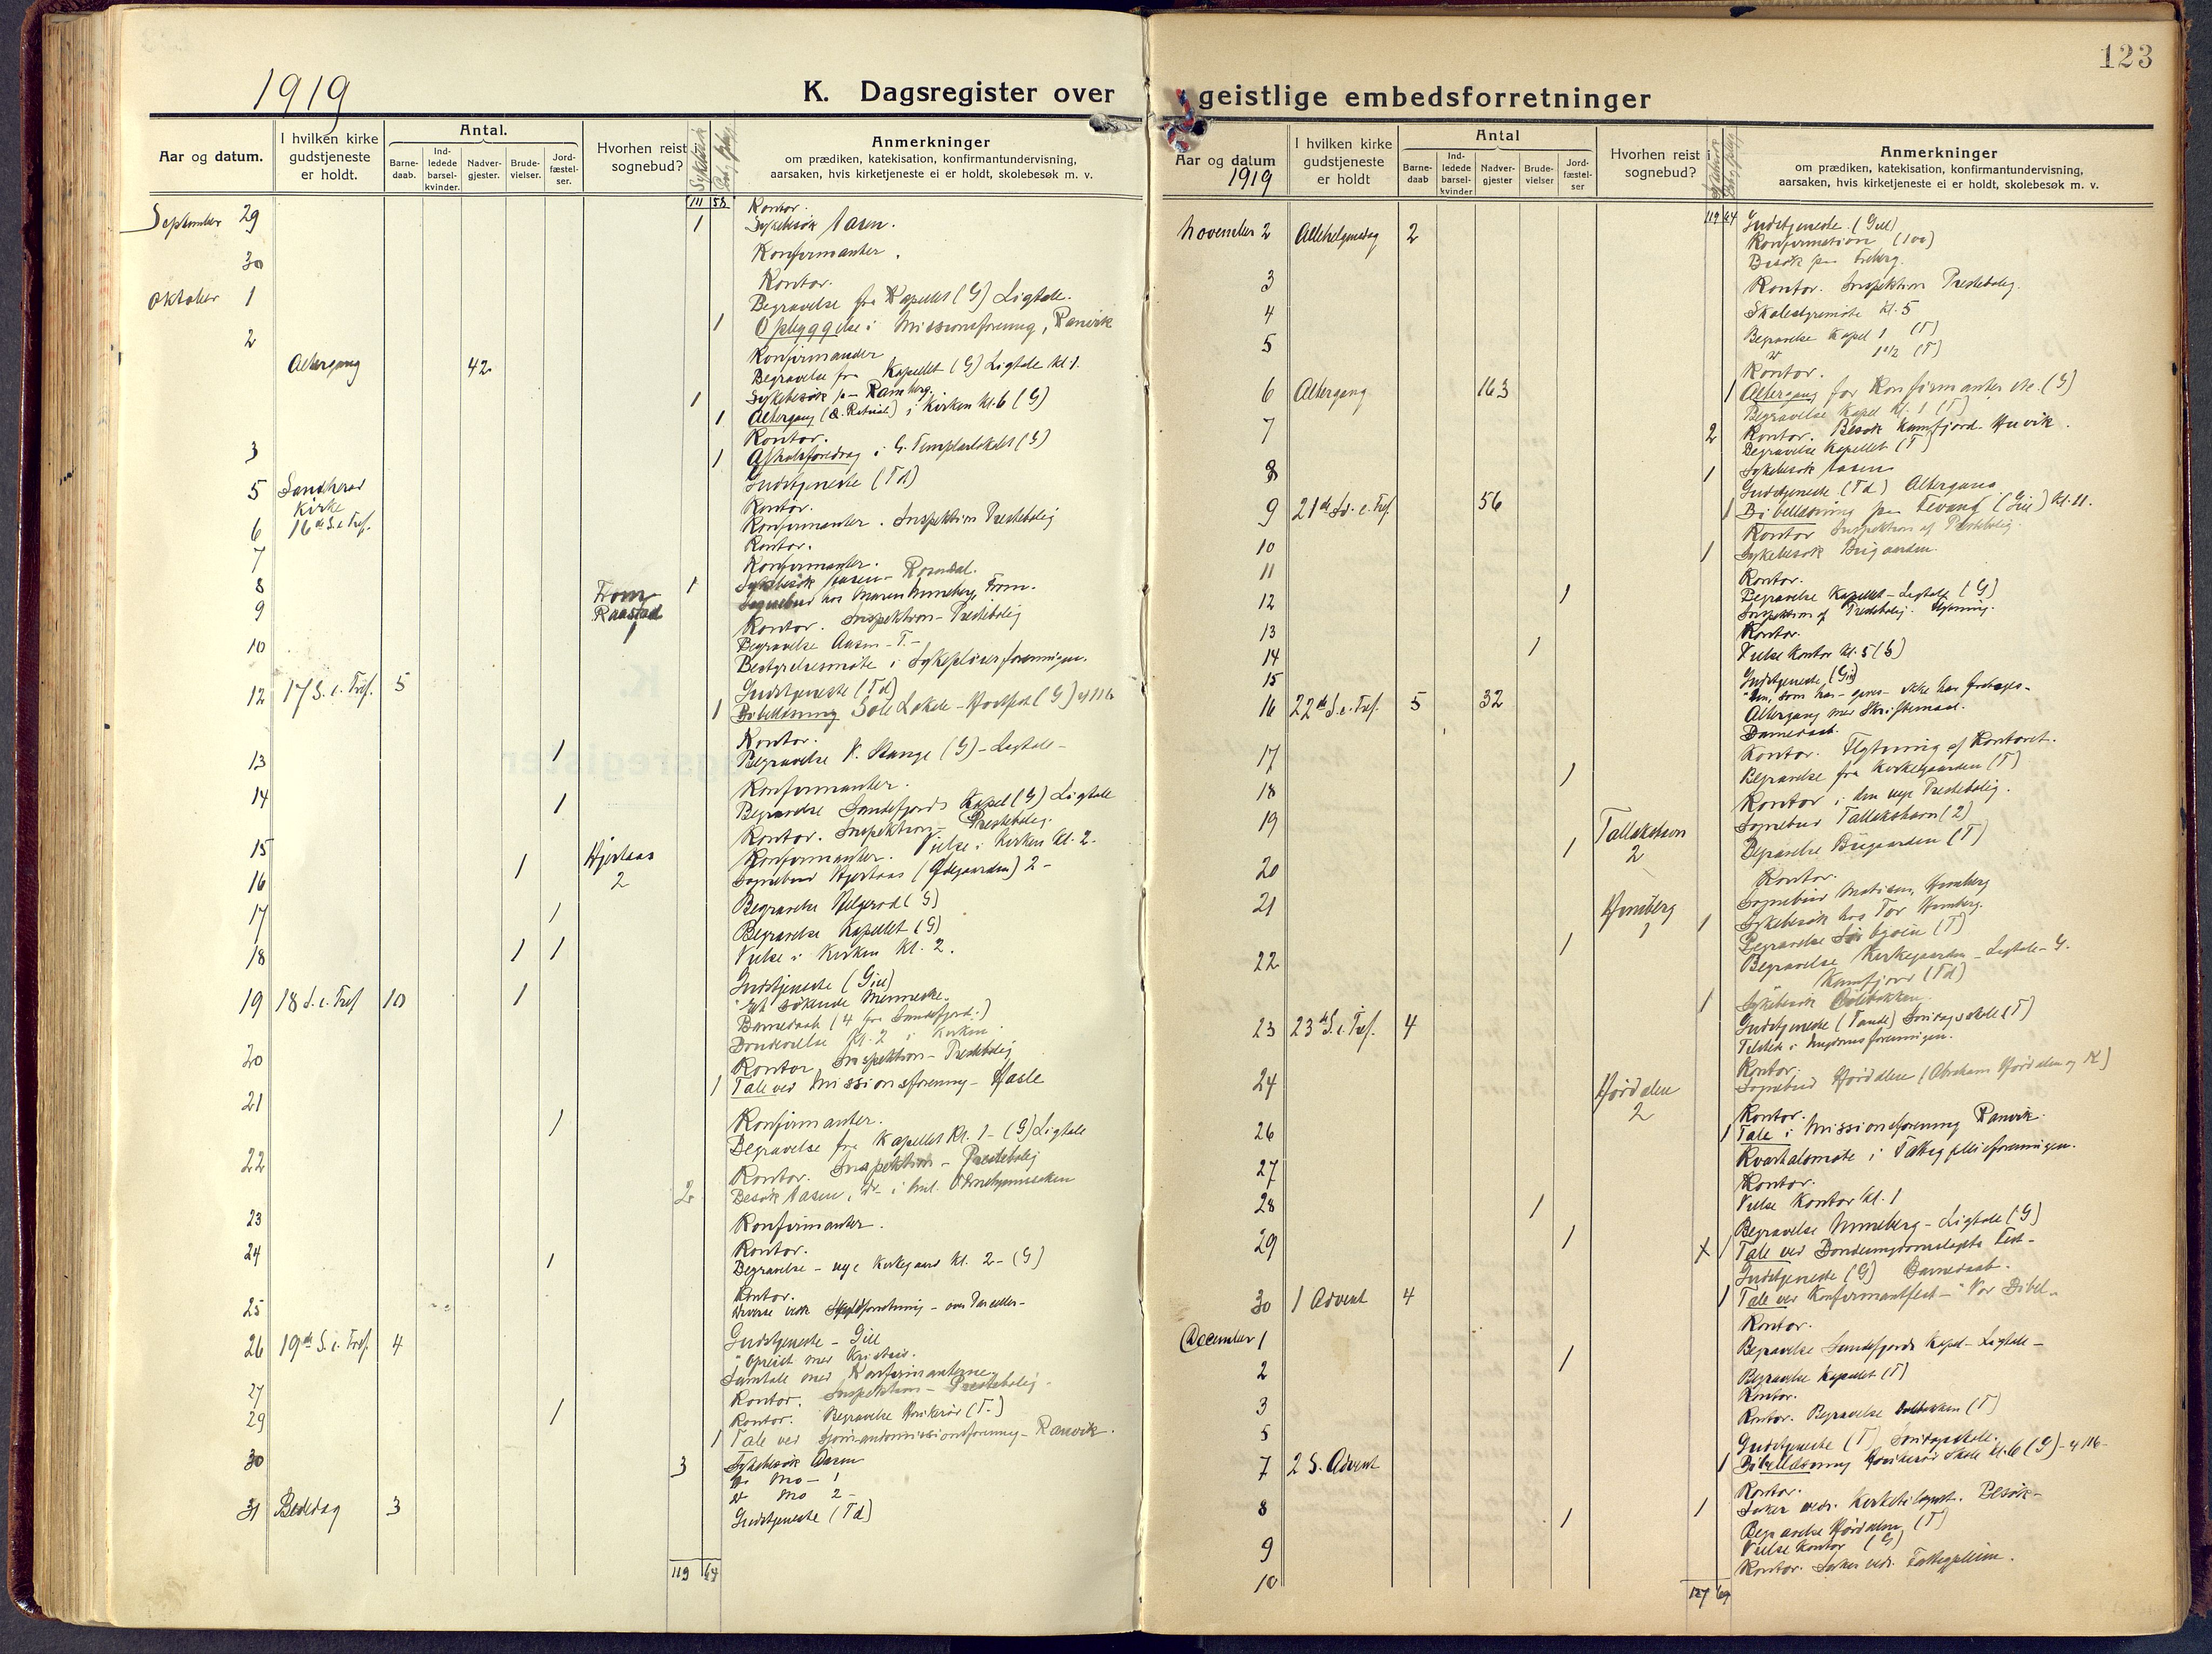 1919
K. Dagsregister over
Aar og datum.
I hvilken kirke gudstjeneste er holdt.
Antal.
Barne-daab.
Ind-ledede barsel-kvinder.
Nadver-gjester.
Brude-vielser.
Jord-fæstel-ser.
Hvorhen reist i sognebud?
Anmerkninger
om prædiken, katekisation, konfirmantundervisning,
aarsaken, hvis kirketjeneste ei er holdt, skolebesøk m. v.
111 58 Kontor.
September 29 1 Sykebesök Aasen.
30 Konfirmanter.
Kontor.
Oktober 1 Begravelse fra Kapellet (G) Ligtale.
1 Opbyggelse i Missionsforening, Ranvik
2 Konfirmander
Altergang 42 Begravelse fra Kapellet (G) Ligtale kl. 1.
1 Sykebesök Ramberg.
1 Altergang i Kirken kl. 6 (G)
Kontor.
3 1 Afholdsforedrag i G. Templarlokalet (G)
5 Sandherad Kirke Gudstjeneste (Td)
16de S. e. Tref. Kontor.
6 Konfirmanter. Inspektion Prestebolig
7 Kontor.
Konfirmanter.
8 1 Sykebesök Aasen - Rosendal.
9 Fron Raastad 1 Sognebud hos Maren Unneberg, Fron.
Kontor. Inspektion - Prestebolig
10 Begravelse Aasen - T. -
Bestyrelsesmöte i Sykepleierforeningen.
12 17 S. e. Tref. 5 Gudstjeneste (Td)
1 Bibellæsning
Kontor.
13 1 Begravelse V. Stange (G) - Ligtale -
Konfirmanter.
14 1 Begravelse Sandefjords Kapel (G) Ligtale
Kontor. Inspektion - Prestebolig.
15 Konfirmanter. Vielse i Kirken kl. 2.
16 1 Hjertaas 2 Sognebud Hjertaas (Ödegaarden) 2 -
17 1 Begravelse Helgerod (G)
Begravelse Kapellet (G)
18 1 1 Vielse i Kirken kl. 2.
Gudstjeneste (Gill)
19 18 S. e. Tref 10 1 "Et sökende Menneske.
Barnedaab (4 fra Sandefjord.)
Brudevielse kl. 2 i Kirken.
20 Kontor Inspektion - Prestebolig
1 Tale ved Missionsforening - Hasle
21 Konfirmanter.
1 Begravelse fra Kapellet kl. 1 - (G) Ligtale
22 Kontor. Inspektion - Prestebolig
2 Besök Aasen,
23 Konfirmanter.
24 Kontor.
1 Begravelse - nye Kirkegaard kl. 2 - (G)
Kontor.
25
26 19de S. e. Tref. 4 Gudstjeneste - Gill
"Opreist med Kristus.
Samtale med Konfirmanterne.
27 Kontor. Inspektion - Prestebolig -
29 1 Kontor. Begravelse (T.)
1 Tale ved Sjömandsmissionsforening - Ranvik.
30 3 Sykebesök Aasen
Mo - 1
Mo 2 -
31 Bededag 3 Gudstjeneste (Td)
119 64
123
geistlige embedsforretninger
Aar og datum
1919
I hvilken kirke gudstjeneste er holdt
Antal
Barne-daab
Ind-ledede barsel-kvinder
Nadver-gjester
Brude-vielser
Jord-fæstel-ser
Hvorhen reist i sognebud?
Anmerkninger
om prædiken, katekisation, konfirmantundervisning,
aarsaken, hvis kirketjeneste ei er holdt, skolebesøk m. v.
119 64 Gudstjeneste (Gill)
November 2 Allehelgensdag 2 Konfirmation (100)
Besök paa
3 Kontor. Inspektion Prestebolig.
4 Skolestyremöte kl. 5
Begravelse Kapel 1 (T)
5 1 1/2 (T)
Kontor.
6 Altergang 163 1 Altergang for Konfirmanter etc. (G)
Begravelse Kapel kl. 1 (T)
7 2 Kontor. Besök Kamfjord. Huvik.
Begravelse Kapellet (T)
8 1 Sykebesök Aasen
Gudstjeneste (Td) Altergang
9 21de S. e. Tref. 56 1 Bibellæsning paa Fevang (Gill) kl. 11.
Kontor Inspektion af Prestebolig.
10 1 Sykebesök Bugaarden.
11 Kontor.
12 1 Begravelse Kapellet - Ligtale (G)
Inspektion af Prestebolig. Flytning.
13 Kontor.
14 1 Vielse Kontor kl. 5 (G)
15 Gudstjeneste (Gill)
16 22de S. e. Tref. 5 32
Altergang med Skriftemaal.
Barnedaab.
17 Kontor. Flytning af Kontoret.
1 Begravelse fra Kirkegaarden (T)
18 Kontor i den nye Prestebolig.
19 Tallakshavn 2 Sognebud Tallakshavn (2)
1 Begravelse Bugaarden (T)
20 Kontor.
21 Hunsberg 1 1
Begravelse (T)
22 1 Begravelse Kirkegaarden - Ligtale - G.
Kamfjord (Td)
1 Sykebesök
23 23de S. e. Tref. 4 Gudstjeneste (Tande) Söndagsskole (T)
Tilstede i Ungdomsforeningen.
Kontor.
24 Hördalen 2 Sognebud Hördalen (Abraham Hördalen og K)
Kontor.
26 1 Tale i Missionsforening Ranvik.
Kvartalsmöte i Fattigpleieforeningen.
27 Kontor.
28 1 Vielse Kontor kl. 1
1 Begravelse Unneberg - Ligtale (G)
29 x 1 Tale ved
Gudstjeneste (G) Barnedaab.
30 1 Advent 4 1 Tale ved Konfirmantfest - "Vor Bibel"
Kontor.
December 1 Begravelse Sandefjords Kapel - Ligtale -
2 1 Begravelse Kapellet (T)
Kontor.
3 Kontor. Begravelse (T)
5 Gudstjeneste (T) Söndagsskole.
7 2 S. Advent 1 Bibellæsning Skole kl. 6 (G)
Kontor.
8 1 Saker vedr. Kirketilsynet. Besök -
1 Begravelse Hördalen (T)
9 Vielse Kontor (G)
10 Kontor. Saker vedr. Fattigpleien.
127 69